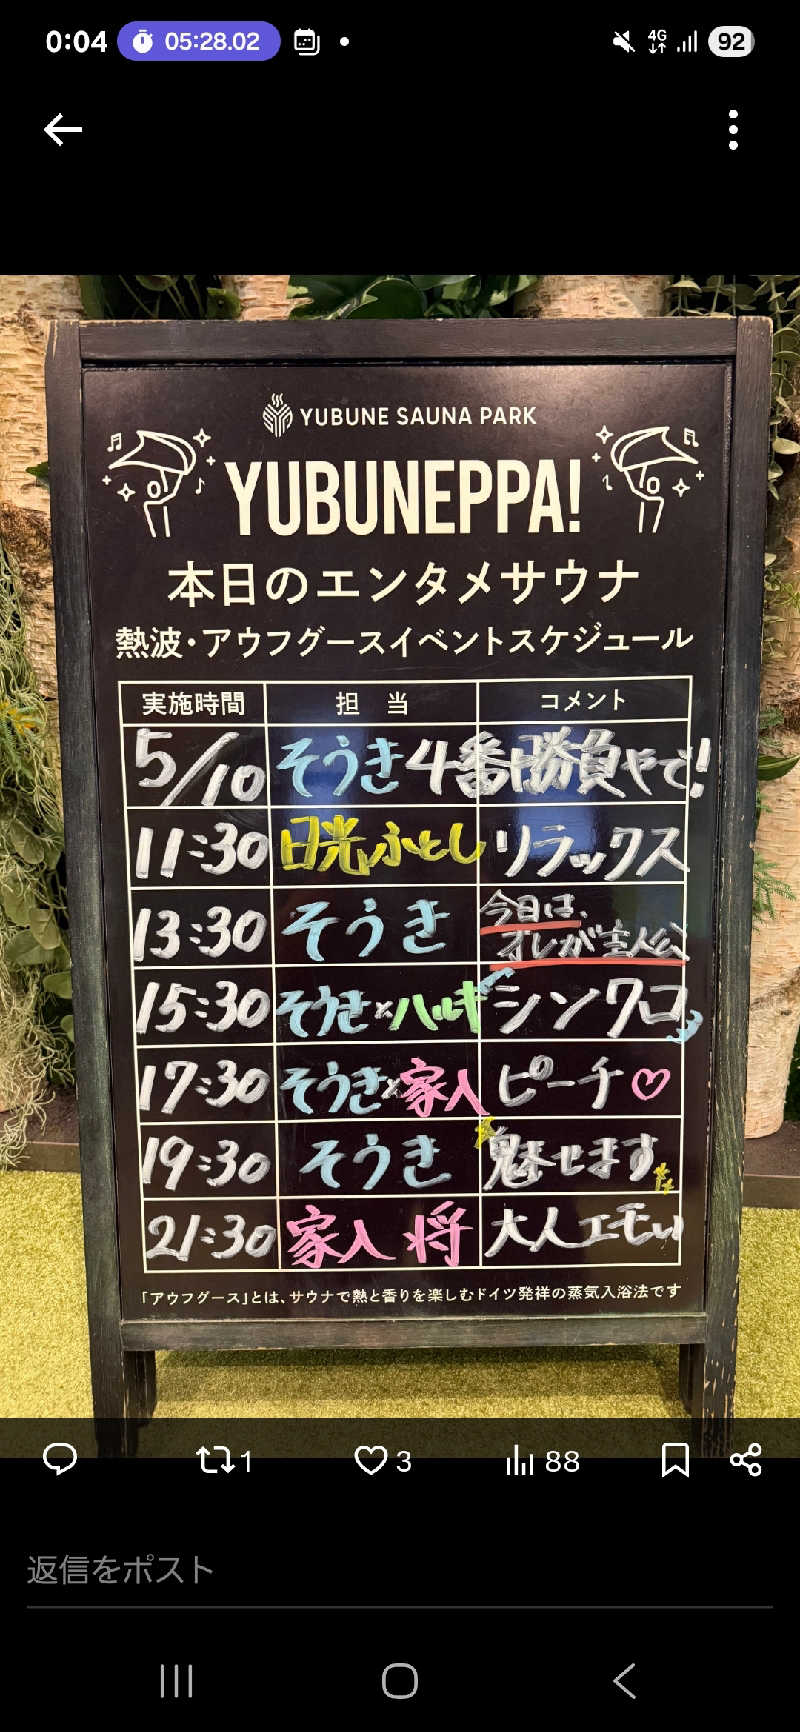 0:04 05:28.02 4G 92
YUBUNE SAUNA PARK
YUBUNEPPA!
本日のエンタメサウナ
熱波・アウフグースイベントスケジュール
実施時間 担当 コメント
5/10 そうき4番勝負やで!
11:30 日光ふとし リラックス
13:30 そうき 今日は、
オレが主人公
15:30 そうき×ハルキ シンクロ
17:30 そうき×家入 ピーチ♡
19:30 そうき 魅せます
21:30 家入 将 大人エモい
「アウフグース」とは、サウナで熱と香りを楽しむドイツ発祥の蒸気入浴法です
1 3 88
返信をポスト